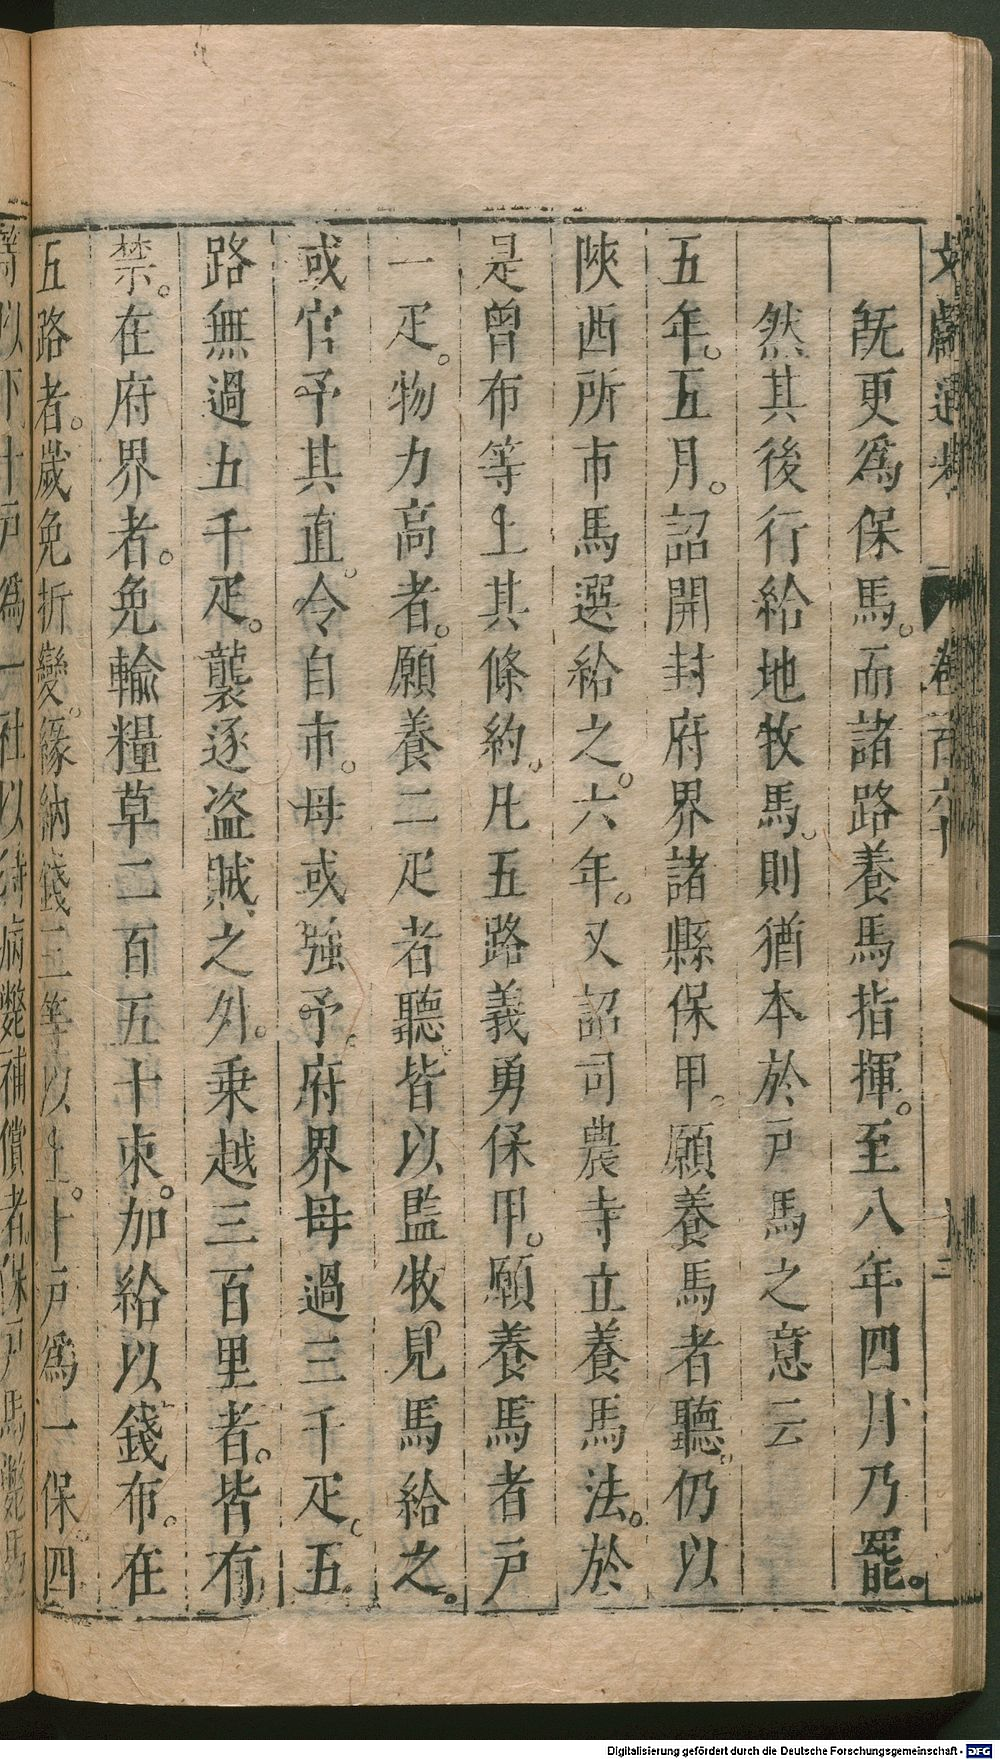 文獻通考 卷百六十 十三
旣更爲保馬。而諸路養馬指揮。至八年四月乃罷。
然其後行給地牧馬。則猶本於戸馬之意云
五年。五月。詔開封府界諸縣保甲。願養馬者聽。仍以
陝西所市馬選給之。六年。又詔司農寺立養馬法。於
是曾布等上其條約。凡五路義勇保甲。願養馬者戸
一疋。物力高者。願養二疋者聽。皆以監牧見馬給之。
或官予其直。令自市。毋或強予。府界毋過三千疋。五
路無過五千疋。襲逐盜賊之外。乗越三百里者。皆有
禁。在府界者。免輸糧草二百五十束。加給以錢布。在
五路者。歲免折變。緣納錢三等以上。十戸爲一保。四
等以下十戸爲一社以待病斃補償者保戸馬斃馬
Digitalisierung gefördert durch die Deutsche Forschungsgemeinschaft - DFG